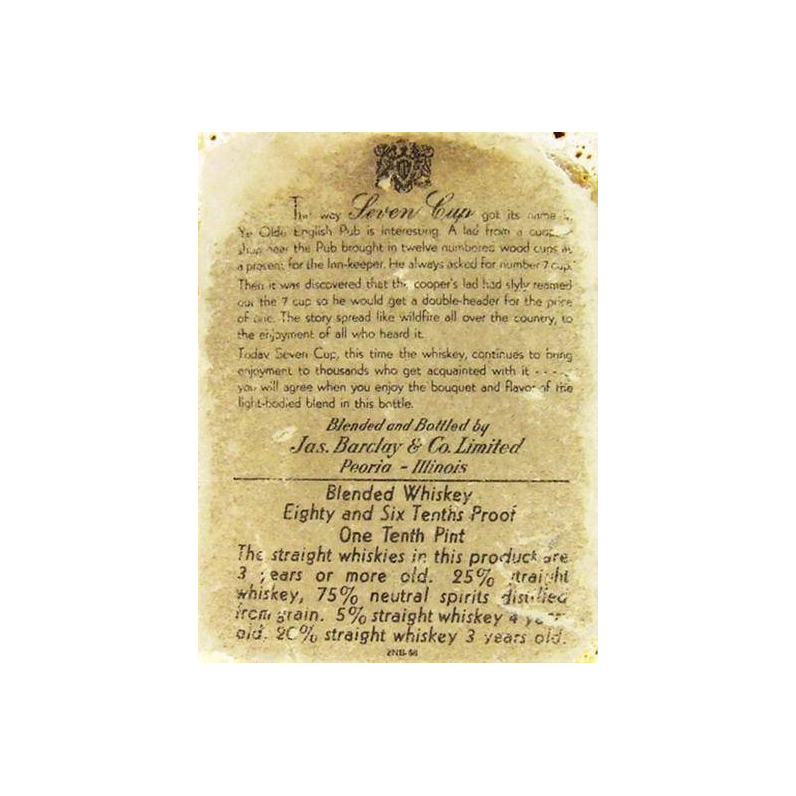 The way Seven Cup got its name
Ye Olde English Pub is interesting. A lad from a
shop near the Pub brought in twelve numbered wood cups as
a present for the Inn-keeper. He always asked for number 7 cup.
Then it was discovered that the cooper's lad had slyly reamed
out the 7 cup so he would get a double-header for the price
of one. The story spread like wildfire all over the country, to
the enjoyment of all who heard it.
Today Seven Cup, this time the whiskey, continues to bring
enjoyment to thousands who get acquainted with it - - - -
you will agree when you enjoy the bouquet and flavor of the
light-bodied blend in this bottle.
Blended and Bottled by
Jas. Barclay & Co. Limited
Peoria - Illinois
Blended Whiskey
Eighty and Six Tenths Proof
One Tenth Pint
The straight whiskies in this product are
3 years or more old. 25% straight
whiskey, 75% neutral spirits distilled
from grain. 5% straight whiskey 4 years
old. 20% straight whiskey 3 years old.